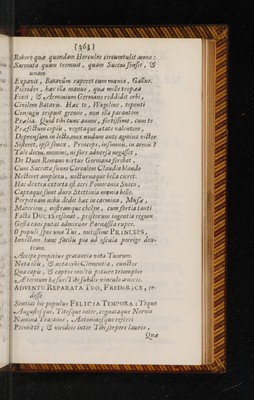 (363)
Robore quæ quondam Herculeo circumtulit arma:
Sarmata quam tremuit, quam Suecus sensit, &
unam
Expavit, Batavûm raperet cum mœnia, Gallus.
Pierides, hæc illa manus, quæ mille tropæa
Fixit, & Arminium Germanis reddidit orbi,
Civilem Batavis. Hæc te, Wageline, tepenti
Conjugis eripuit gremio, non illa parantem
Prælia. Quid tibi tunc animi, fortissime, cum te
Præfectum copiis, vegetaque ætate valentem,
Depressum in lecto, moxnudum ante agmina victor
Sisteret, ipse senex, Princeps, insomnis, in armis?
Tale decus, momini, ni fors adversa negasset,
De Duce Romano virtus Germana ferebat,
Cum Sacrata suum Cerealem Claudia blando
Necteret amplexu, nocturnaque bella cieret.
Hac dextra extructa est acri Pomerania Sueco,
Captaque sunt duro Stettinia mœnia bello.
Perpetuam nobis dedit hæc in carmina, Musæ,
Materiem, nostramque chelyn, cum fortia tanti
Facta DUCIS resonat, priscorum ingentia regum
Gesta cani putat admirans Parnassia rupes.
O populi spes una Tui, mitissime PRINCEPS,
Invictam hanc facili pia ad oscula porrige dextram.
Accipe propitius gratantia vota Tuorum.
Nota illis, & nota tibi Clementia, cunctos
Qua capis, & captos multò pictiore triumpho
Æternum has juri Tibi subdis vinculo amoris.
ADVENTU REPARATA TUO, FREDERICE, redisse
Sentiat hic populus FELICIA TEMPORA; Teque
Augustosque, Titosque inter, cognataque Nervis
Nomina Trajanos, Antoninosque referri
Promittit, & virideis inter Tibi serpere lauros,
Quæ